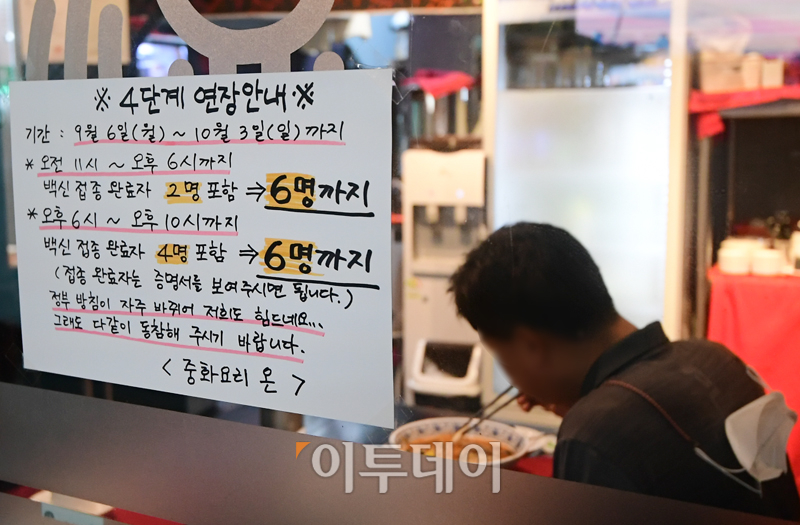 ※ 4단계 연장안내 ※
기간 : 9월 6일(월) ~ 10월 3일(일) 까지
* 오전 11시 ~ 오후 6시까지
백신 접종 완료자 2명 포함 ⇒ 6명까지
* 오후 6시 ~ 오후 10시까지
백신 접종 완료자 4명 포함 ⇒ 6명까지
(접종 완료자는 증명서를 보여주시면 됩니다.)
정부 방침이 자주 바뀌어 저희도 힘드네요...
그래도 다같이 동참해 주시기 바랍니다.
< 중화요리 온 >
이투데이